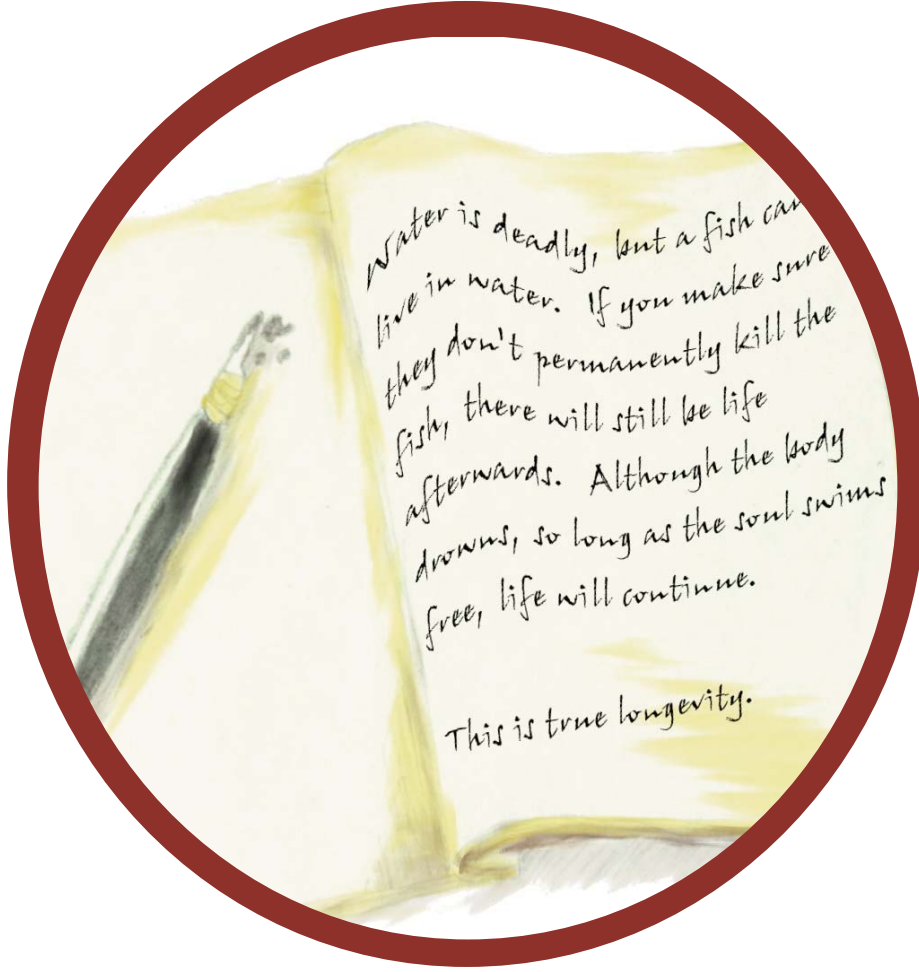 Water is deadly, but a fish can
live in water. If you make sure
they don't permanently kill the
fish, there will still be life
afterwards. Although the body
drowns, so long as the soul swims
free, life will continue.
This is true longevity.